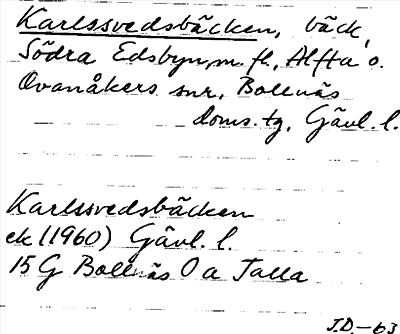 Karlssvedsbäcken, bäck,
Södra Edsbyn m. fl., Alfta o.
Ovanåkers snr, Bollnäs
doms.tg, Gävl. l.
Karlssvedsbäcken
ek (1960) Gävl. l.
15 G Bollnäs O a Talla
J.D.-63